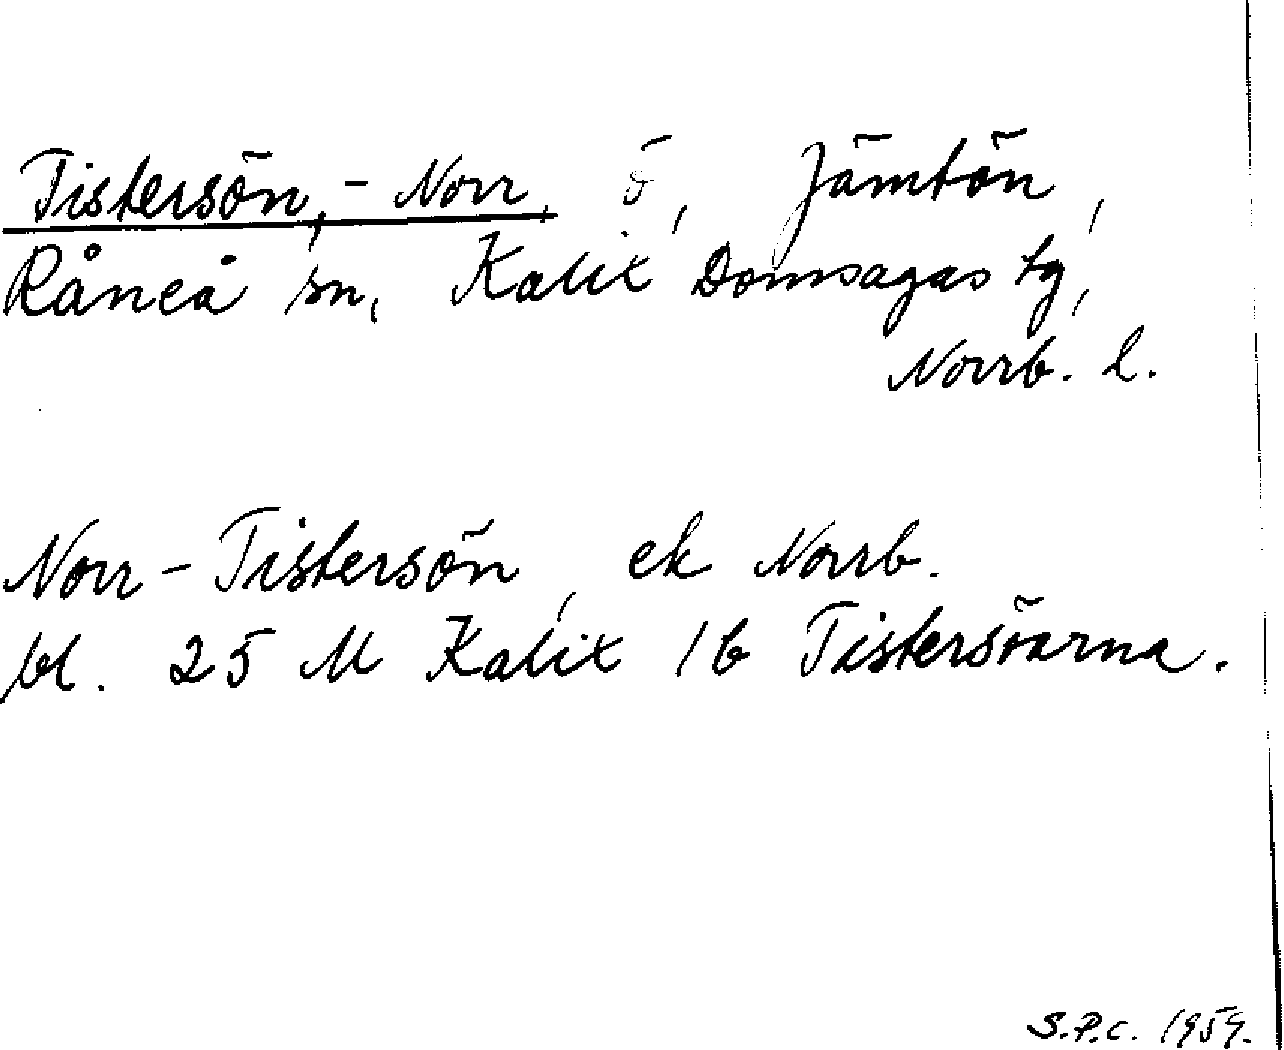 Tistersön, - Norr, ö, Jämtön,
Råneå sn, Kalix Domsagas tg,
Norrb. l.
Norr-Tistersön, ek Norrb.
bl. 25 M Kalix 1b Tistersöarna.
S.P.C. 1959.